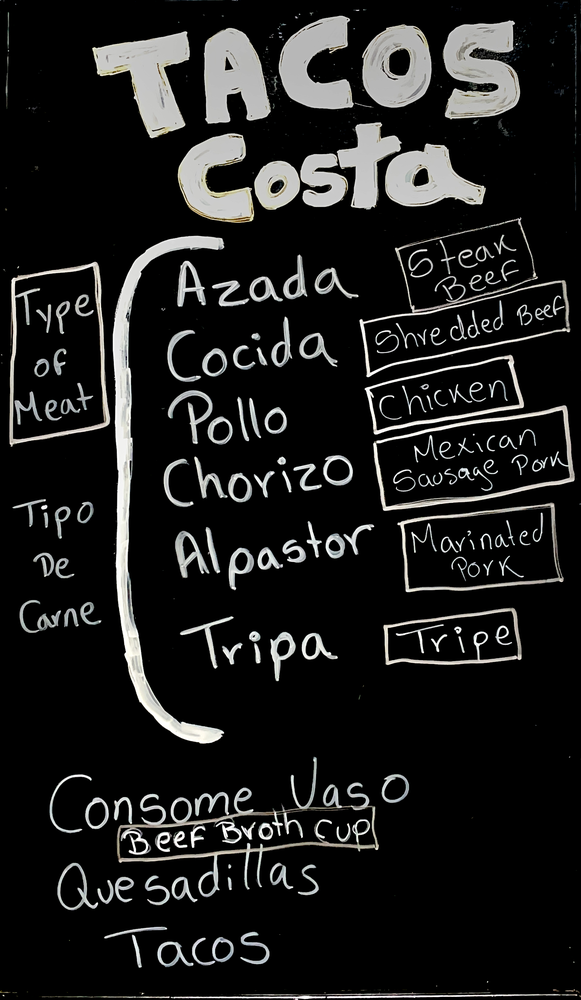 TACOS
Costa
Type
of
Meat
Tipo
De
Carne
Azada
Steak
Beef
Cocida
Shredded Beef
Pollo
Chicken
Chorizo
Mexican
Sausage Pork
Alpastor
Marinated
Pork
Tripa
Tripe
Consome Vaso
Beef Broth Cup
Quesadillas
Tacos